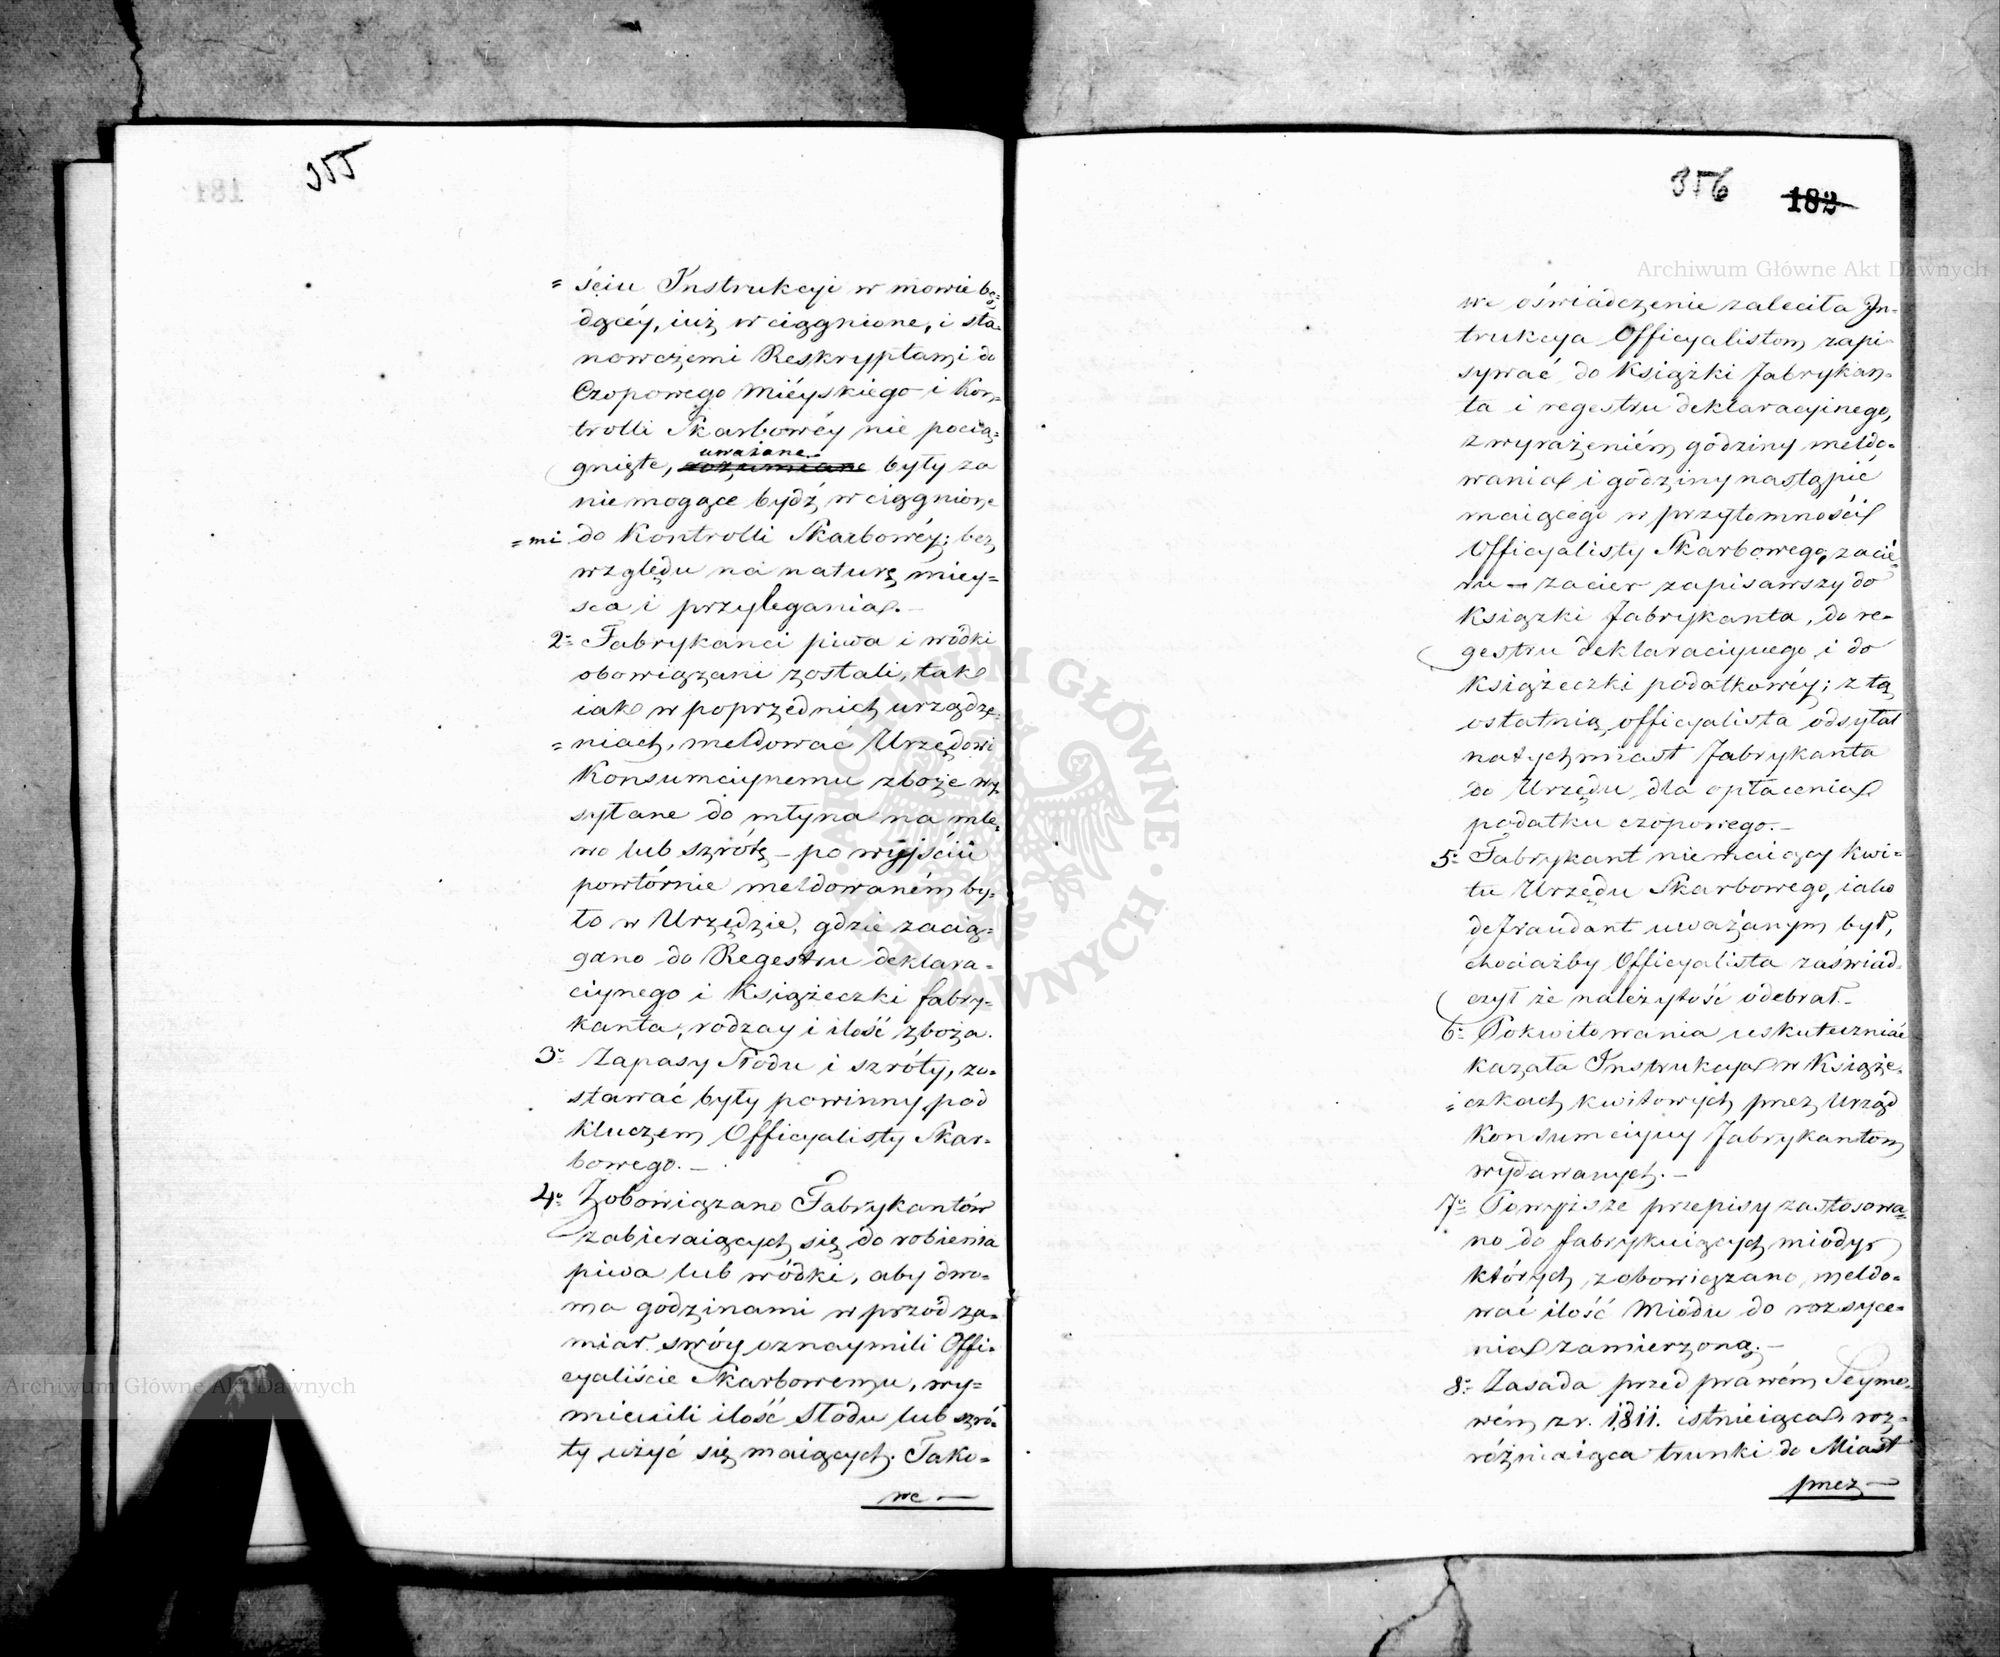 355
= ściu Instrukcyi w mowie bę-
dącéy, iuż wciągnione, i sta-
nowczemi Reskryptami do
Czopowego Mieyskiego i Kon-
trolli Skarbowéy nie pocią-
gnięte, uważane były za
niemogące bydź wciągnione
=mi do Kontrolli Skarbowéy; bez
względu na naturę miey-
sca i przylegania.
2= Fabrykanci piwa i wódki
obowiązani zostali, tak
iak w poprzednich urządze-
= niach, meldować Urzędowi
Konsumciynemu zboże wy-
syłane do młyna na mle-
wo lub szrótę – po wyjściu
powtórnie meldowaném by-
ło w Urzędzie, gdzie zacią-
gano do Regestru deklara-
ciynego i Książeczki fabry-
kanta, rodzay i ilość zboża.
3= Zapasy Słodu i szróty, zo-
stawać były powinny pod
kluczem Officyalisty Skar-
bowego. –
4= Zobowiązano Fabrykantów
zabieraiących się do robienia
piwa lub wódki, aby dwo-
ma godzinami wprzód za-
miar swóy oznaymili Offi-
cyaliście Skarbowemu, wy-
mienili ilość Słodu lub szró-
ty użyć się maiących. Tako-
we –
356 182
we oświadczenie zaleciła In-
trukcya Officyalistom zapi-
sywać do Książki Fabrykan-
ta i regestru deklaracyinego,
z wyrażeniém godziny meldo-
wania i godziny nastąpić
maiącego w przytomności
Officyalisty Skarbowego, zacie-
ru – zacier zapisawszy do
Książki Fabrykanta, do re-
gestru deklaraciynego i do
Książeczki podatkowéy; z tą
ostatnią officyalista odsyłał
natychmiast Fabrykanta
do Urzędu dla opłacenia
podatku czopowego. –
5= Fabrykant niemaiący kwi-
tu Urzędu Skarbowego, iako
defraudant uważanym był,
chociażby Officyalista zaświad-
czył że należytość odebrał. –
6= Pokwitowania uskuteczniać
kazała Instrukcya w Książe-
= czkach kwitowych przez Urząd
Konsumciyny Fabrykantom
wydawanych. –
7= Powyższe przepisy zastosowa-
no do fabrykuiących miody,
których zobowiązano meldo-
wać ilość Miodu do rozsyce-
nia zamierzoną. –
8= Zasada przed prawém Seymo-
wém z r. 1811. istnieiąca, roz-
różniaiąca trunki do Miast
przez –
Archiwum Główne Akt Dawnych
Archiwum Główne Akt Dawnych
ARCHIWUM GŁÓWNE AKT DAWNYCH